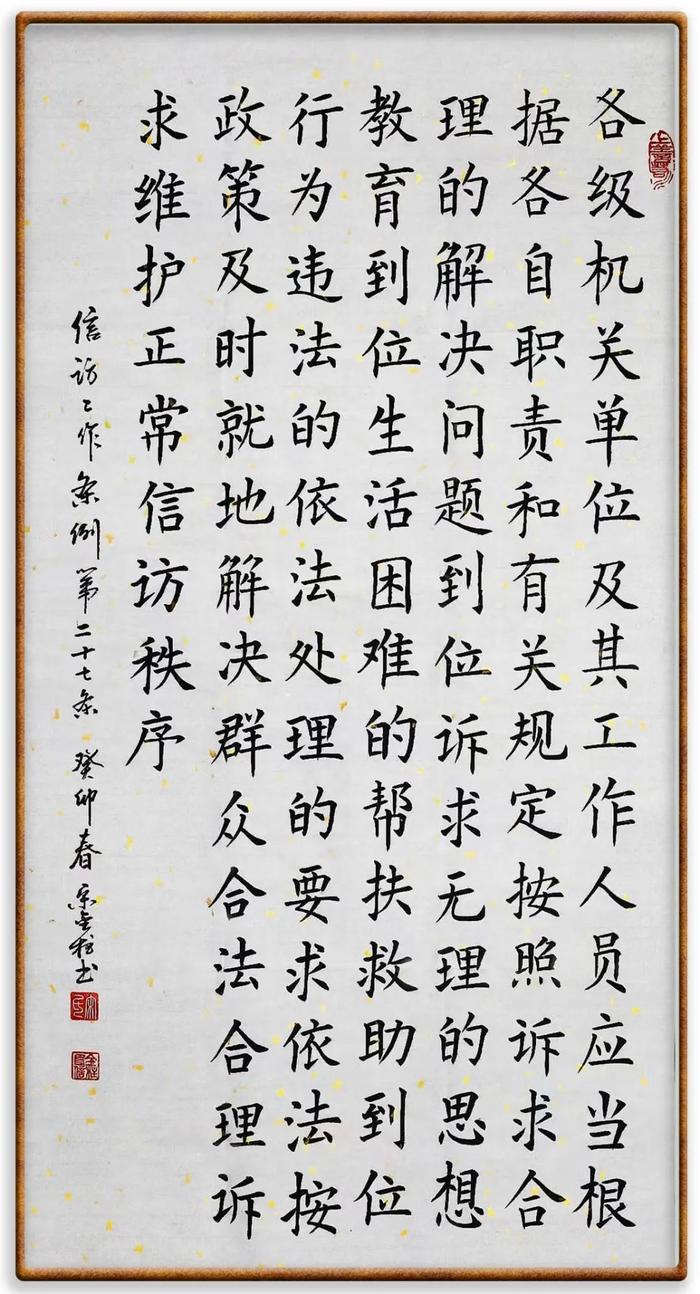 各级机关单位及其工作人员应当根
据各自职责和有关规定按照诉求合
理的解决问题到位诉求无理的思想
教育到位生活困难的帮扶救助到位
行为违法的依法处理的要求依法按
政策及时就地解决群众合法合理诉
求维护正常信访秩序
信访工作条例第二十七条 癸卯春 宋金柱书